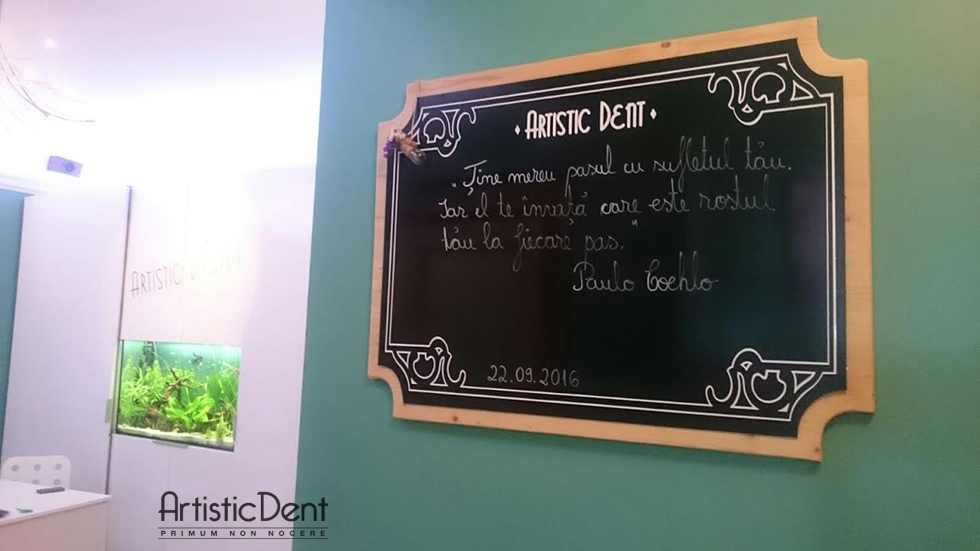 • ARTISTIC DENT •
„Ține mereu pasul cu sufletul tău.
Iar el te învață care este rostul
tău la fiecare pas."
Paulo Coehlo
22.09.2016
ARTISTIC DENT
ArtisticDent
PRIMUM NON NOCERE